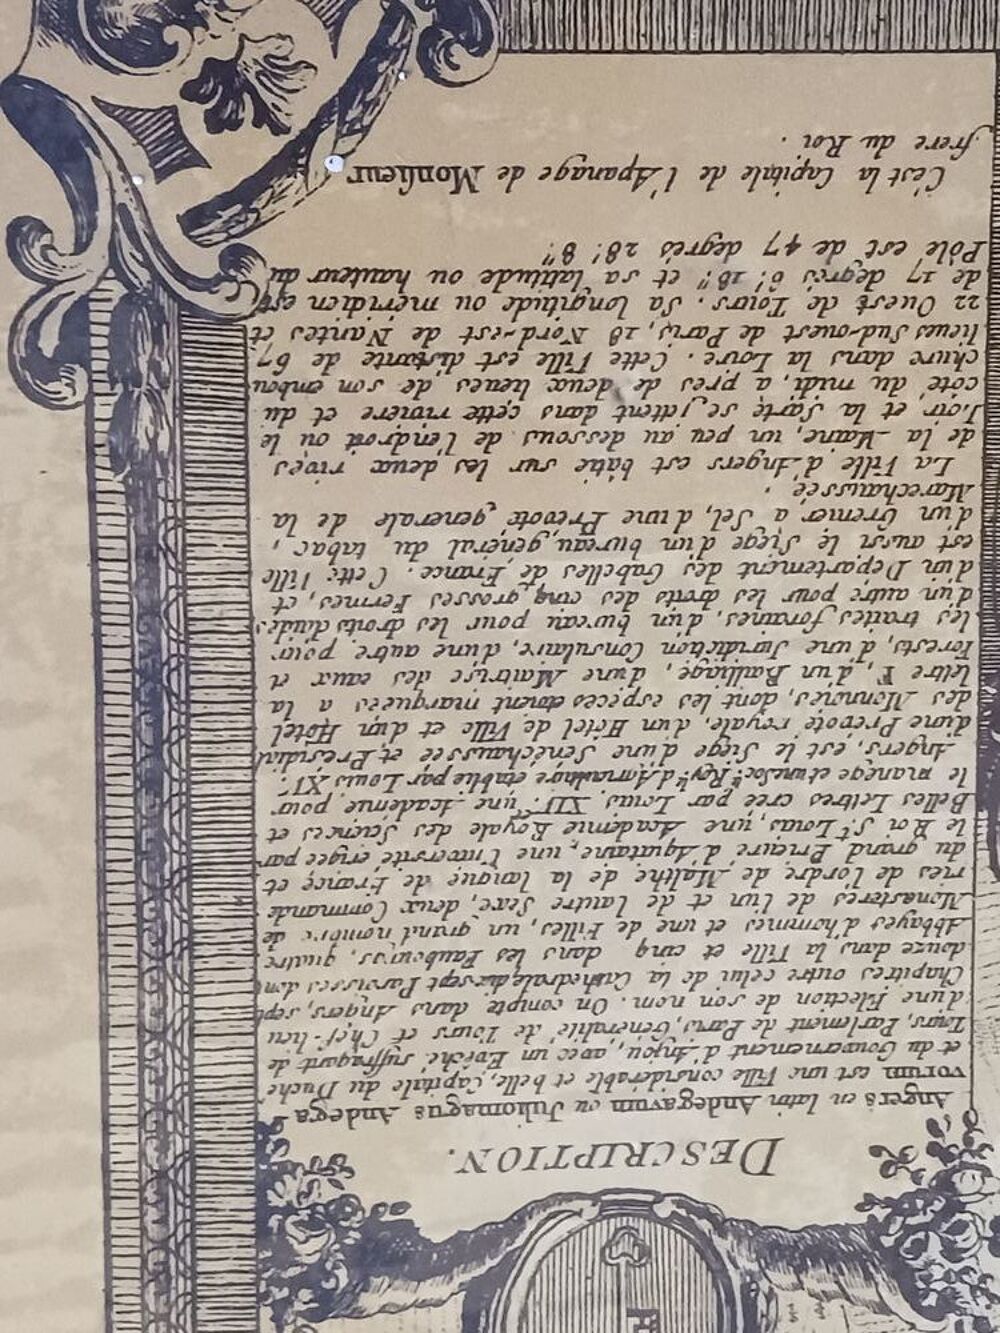 DESCRIPTION.
Angers en latin Andegavum ou Juliomagus Andega-
vorum est une Ville considerable et belle, Capitale du Duché
et du Gouvernement d'Anjou, avec un Evêché suffragant de
Tours, Parlement de Paris, Généralité de Tours et Chef-lieu
d'une Election de son nom. On compte dans Angers, sept
Chapitres outre celui de la Cathédrale, dix sept Paroisses dont
douze dans la Ville et cinq dans les Fauboürgs, quatre
Abbayes d'hommes et une de Filles, un grand nombre de
Monasteres de l'un et de l'autre Sexe, deux Commande
ries de l'ordre de Malthe de la langue de France et
du grand Prieuré d'Aquitaine, une Université erigée par
le Roi St. Louis, une Académie Royale des Sciences et
Belles Lettres créé par Louis XIV. une Academie pour
le manège et une Socté Royle d'Agriculture établie par Louis XV.
Angers, est le Siège d'une Sénéchaussée et Presidial
d'une Prevoté royale, d'un Hôtel de Ville et d'un Hôtel
des Monnoies, dont les espèces étoient marquées a la
lettre F, d'un Bailliage, d'une Maitrise des eaux et
Forests, d'une Jurisdiction Consulaire, d'une autre pour
les traites foraines, d'un bureau pour les droits d'aides
d'un autre pour les droits des cinq grosses Fermes, et
d'un Departement des Gabelles de France. Cette Ville
est aussi le Siège d'un bureau général du tabac,
d'un Grenier a Sel, d'une Prevoté generale de la
Marechaussée.
La Ville d'Angers est bâtie sur les deux rives
de la Maine, un peu au dessous de l'endroit ou le
Loir et la Sarte se jettent dans cette riviere et du
coté du midi, a près de deux lieues de son embou
chure dans la Loire. Cette Ville est distante de 67
lieues Sud-ouest de Paris, 18 Nord-est de Nantes et
22 Ouest de Tours. Sa longitude ou meridien est
de 17 degrés 6! 18" et sa latitude ou hauteur du
Pôle est de 47 degrés 28! 8"
C'est la Capitale de l'Apanage de Monsieur
frere du Roi.